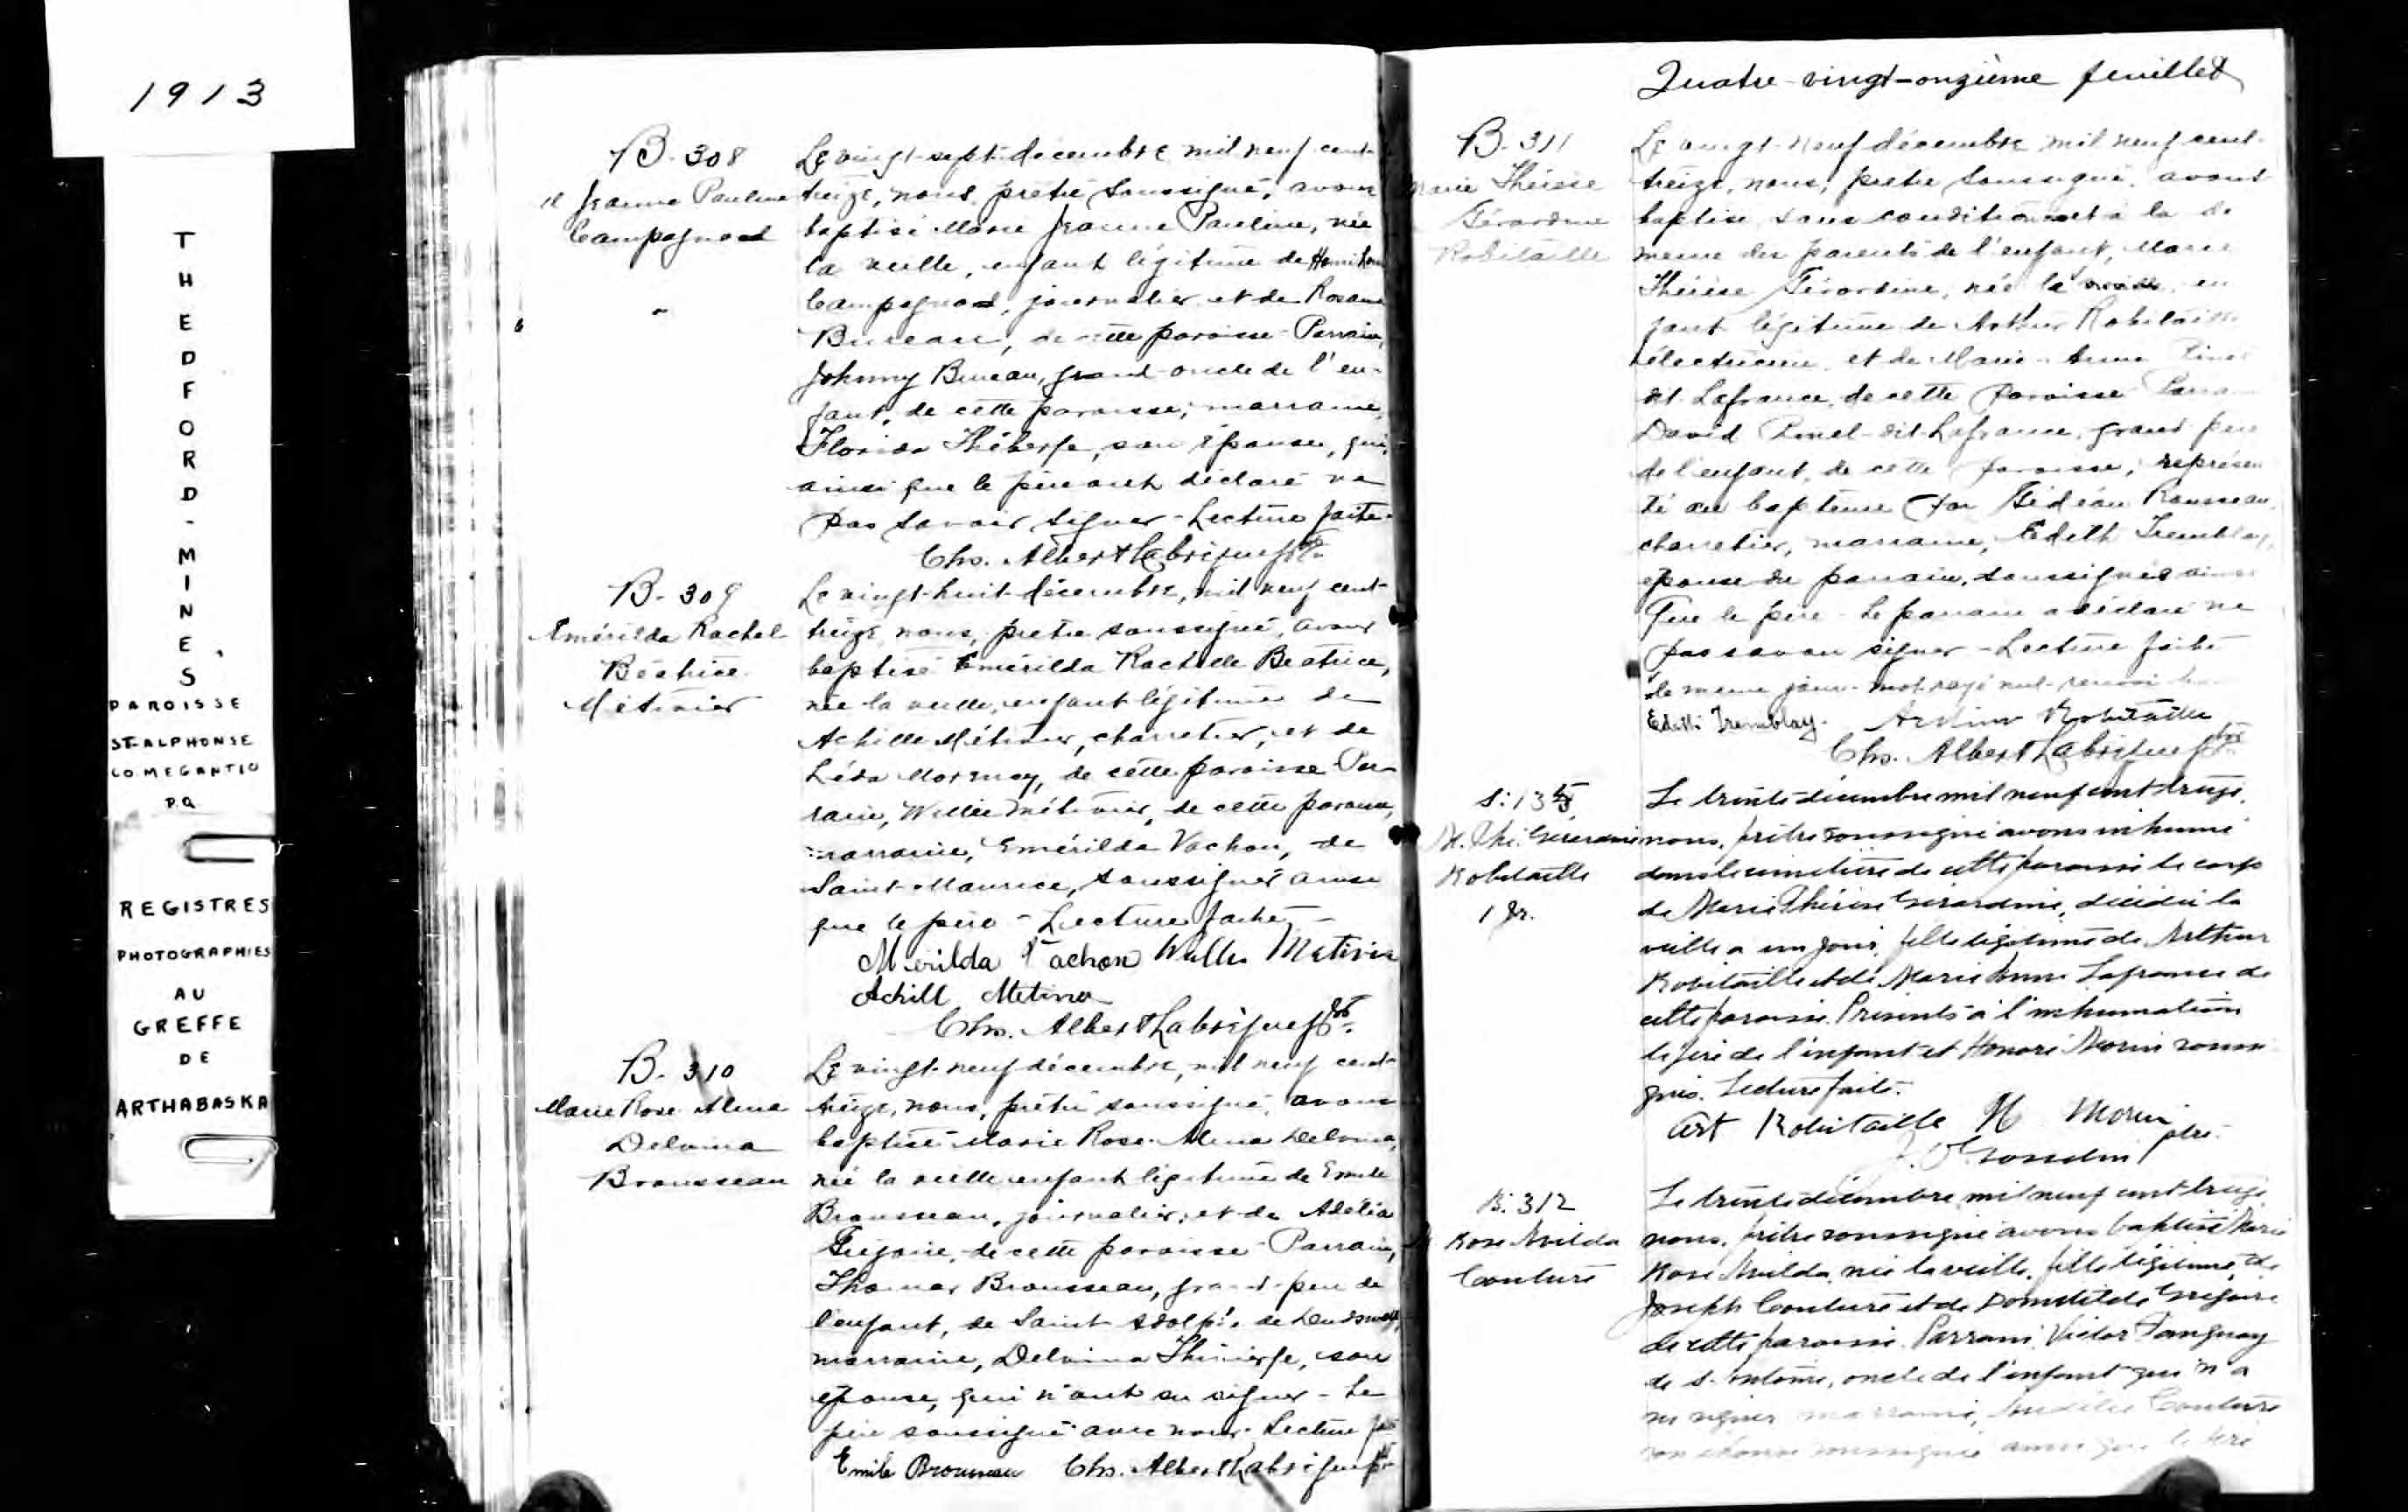 1913
THEDFORD-MINES
PAROISSE
ST-ALPHONSE
CO. MEGANTIC
P.Q
REGISTRES
PHOTOGRAPHIES
AU
GREFFE
DE
ARTHABASKA
B. 308
Jeanne Pauline
Campagnad
Le vingt-sept décembre mil neuf cent
treize, nous, prêtre soussigné, avons
baptisé Marie Jeanne Pauline, née
la veille, enfant légitime de
Campagnad, journalier et de Rosanna
Bureau, de cette paroisse - Parrain,
Johnny Bureau, grand-oncle de l'en-
fant, de cette paroisse; marraine,
Florida Théberge, son épouse, qui,
ainsi que le père ont déclaré ne
pas savoir signer - Lecture faite -
Chs. Albert Labrèque ptre
B. 309
Emérilda Rachel
Béatrice
Métivier
Le vingt-huit décembre, mil neuf cent
treize, nous, prêtre soussigné, avons
baptisé Emérilda Rachelle Béatrice,
née la veille, enfant légitime de
Achille Métivier, charretier, et de
Léda Mornay, de cette paroisse - Par-
rain, Willie Métivier, de cette paroisse,
marraine, Emérilda Vachon, de
Saint-Maurice, soussignés ainsi
que le père - Lecture faite -
Merilda Vachon Willie Metivier
Achill Metivier
Chs. Albert Labrèque ptre
B. 310
Marie Rose Alma
Delvina
Brousseau
Le vingt-neuf décembre, mil neuf cent
treize, nous, prêtre soussigné, avons
baptisé Marie Rose Alma Delvina,
née la veille enfant légitime de Emile
Brousseau, journalier, et de Adélia
Grégoire, de cette paroisse - Parrain,
Thomas Brousseau, grand-père de
l'enfant, de Saint Adolphe de Dudswell,
marraine, Delvina Thivierge, son
épouse, qui n'ont su signer - Le
père soussigné avec nous. Lecture faite
Emile Brousseau Chs. Albert Labrèque ptre
Quatre-vingt-onzième feuillet
B. 311
Marie Thérèse
Gérardine
Robitaille
Le vingt-neuf décembre mil neuf cent-
treize, nous, prêtre soussigné, avons
baptisé sous condition et à la de
mande des parents de l'enfant, Marie
Thérèse Gérardine, née la veille, en
fant légitime de Arthur Robitaille
électricien, et de Marie-Anna Pinel
dit Lafrance, de cette paroisse
David Pinel-dit-Lafrance, grand père
de l'enfant, de cette paroisse, représen
té au baptême par Gédéon Rousseau,
charretier, marraine, Edith Tremblay,
épouse du parrain, soussignée ainsi
que le père - Le parrain a déclaré ne
pas savoir signer - Lecture faite
le même jour - mot rayé nul -
Edith Tremblay. Arthur Robitaille
Chs. Albert Labrèque ptre
S: 135
M. Thé. Gérardine
Robitaille
1 jr.
Le trente décembre mil neuf cent treize,
nous, prêtre soussigné avons inhumé
dans le cimetière de cette paroisse le corps
de Marie Thérèse Gérardine, décédée la
veille a un jour, fille légitime de Arthur
Robitaille et de Marie Anna Lafrance de
cette paroisse. Présents à l'inhumation
le père de l'enfant et Honoré Morin soussi-
gnés. Lecture faite.
Art Robitaille H Morin
ptre.
B: 312
Rose Avilda
Couture
Le trente décembre mil neuf cent treize
nous, prêtre soussigné avons baptisé Marie
Rose Avilda née la veille, fille légitime de
Joseph Couture et de Domitilde Grégoire
de cette paroisse. Parrain Victor Tanguay
de S. Antoine, oncle de l'enfant qui n'a
su signer marraine, Couture
son épouse soussignée ainsi que le père